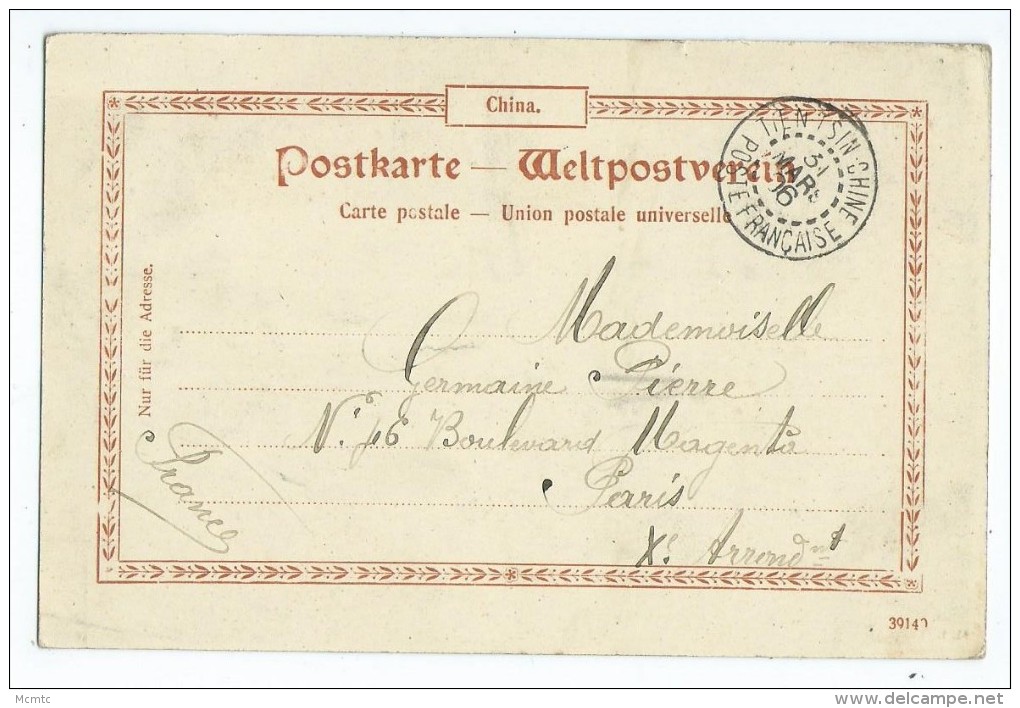 China.
Postkarte — Weltpostverein
Carte postale — Union postale universelle
TIEN-TSIN-CHINE
31
MARS
06
POSTE FRANÇAISE
Nur für die Adresse.
Mademoiselle
Germaine Pierre
N° 46 Boulevard Magenta
Paris
Xe Arrondmt
France
39140
Mcmtc
www.delcampe.net